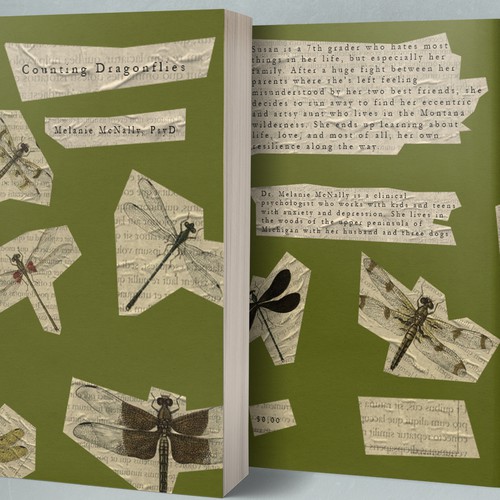 Counting Dragonflies
Melanie McNally, PsyD
Susan is a 7th grader who hates most
things in her life, but especially her
family. After a huge fight between her
parents where she's left feeling
misunderstood by her two best friends, she
decides to run away to find her eccentric
and artsy aunt who lives in the Montana
wilderness. She ends up learning about
life, love, and most of all, her own
resilience along the way.
Dr. Melanie McNally is a clinical
psychologist who works with kids and teens
with anxiety and depression. She lives in
the woods of the upper peninsula of
Michigan with her husband and three dogs.
$0.00